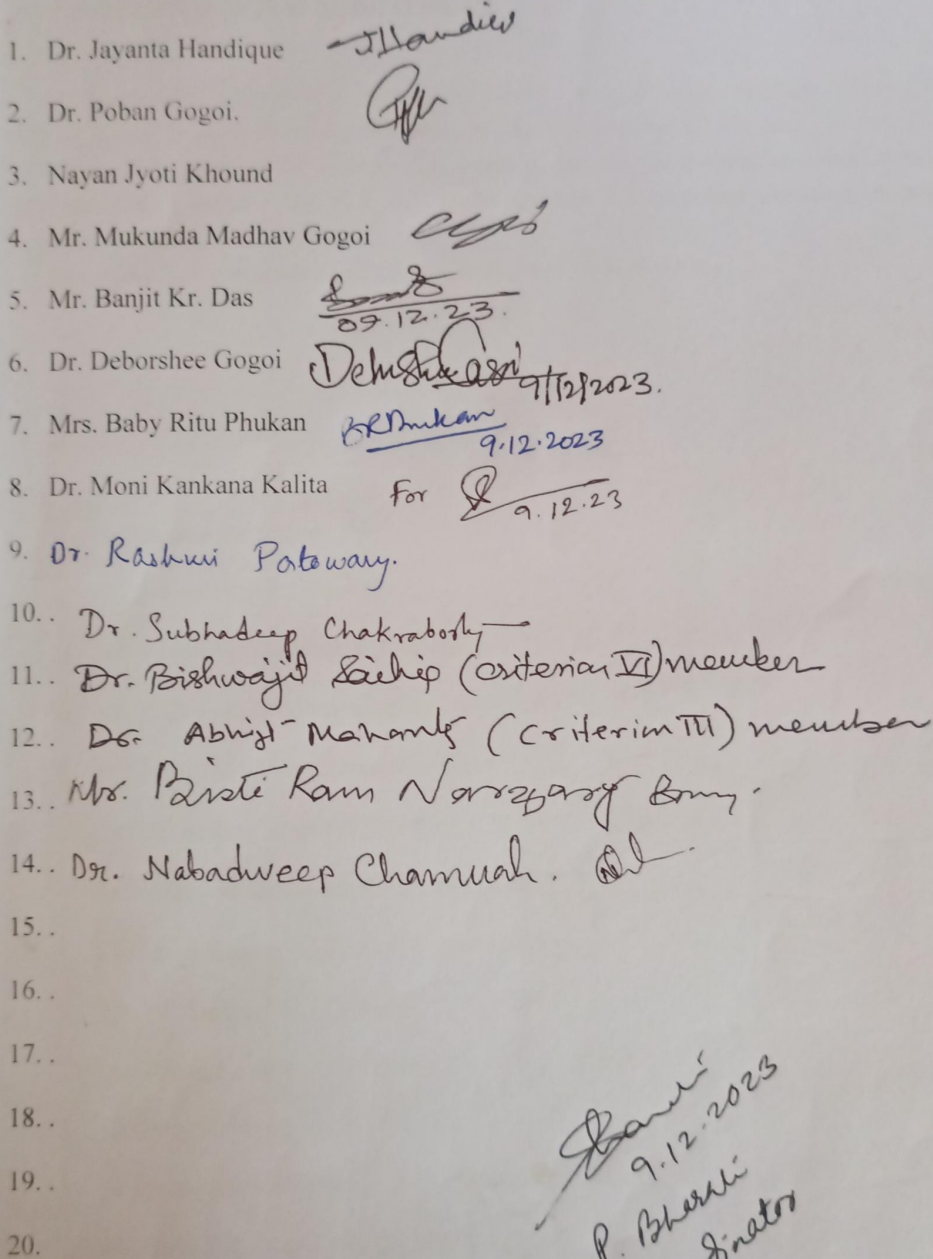 1. Dr. Jayanta Handique
2. Dr. Poban Gogoi.
3. Nayan Jyoti Khound
4. Mr. Mukunda Madhav Gogoi
5. Mr. Banjit Kr. Das
09.12.23.
6. Dr. Deborshee Gogoi 9/12/2023.
7. Mrs. Baby Ritu Phukan BRPhukan
9.12.2023
8. Dr. Moni Kankana Kalita For
9.12.23
9. Dr. Rashmi Patowary.
10.. Dr. Subhadeep Chakraborty
11.. Dr. Bishwajit (Criterion VI) member
12.. Dr. Abhijit Mahanta (Criterion III) member
13.. Mr. Ram
14.. Dr. Nabadweep Chamuah.
15..
16..
17..
18..
19..
20.
9.12.2023
P. Bharali
dinator